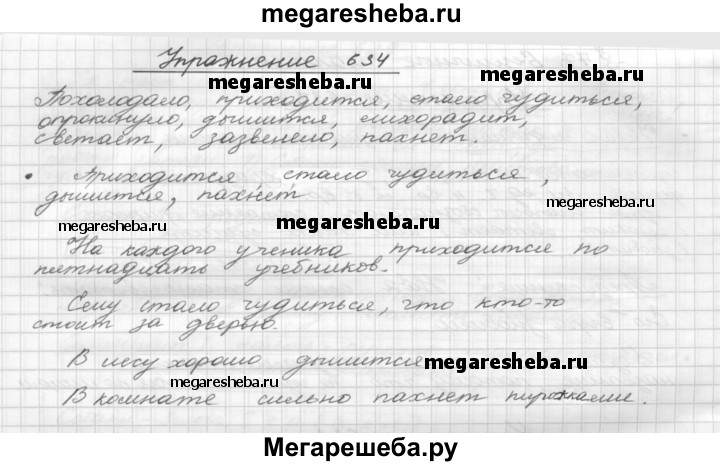 megaresheba.ru
Упражнение 634
megaresheba.ru megaresheba.ru
Похолодало, приходится, стало чудиться,
опрокинуло, дышится, лихорадит,
светает, зазвенело, пахнет.
• Приходится стало чудиться,
дышится, пахнет
megaresheba.ru megaresheba.ru megaresheba.ru
На каждого ученика приходится по
пятнадцать учебников.
Сему стало чудиться, что кто-то
стоит за дверью.
В лесу хорошо дышится
megaresheba.ru
megaresheba.ru
В комнате сильно пахнет пирожками.
Мегарешеба.ру